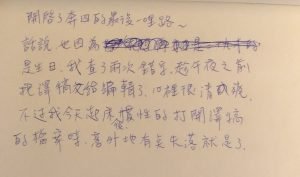 開啟了奔回的最後一哩路～
話說也因為
是生日,我查了兩次錯字,趕午夜之前
把譯稿交給編輯了,心裡很清爽,
不過我今天起床後慣性的打開譯稿
的檔案時,意外地有點失落就是了.